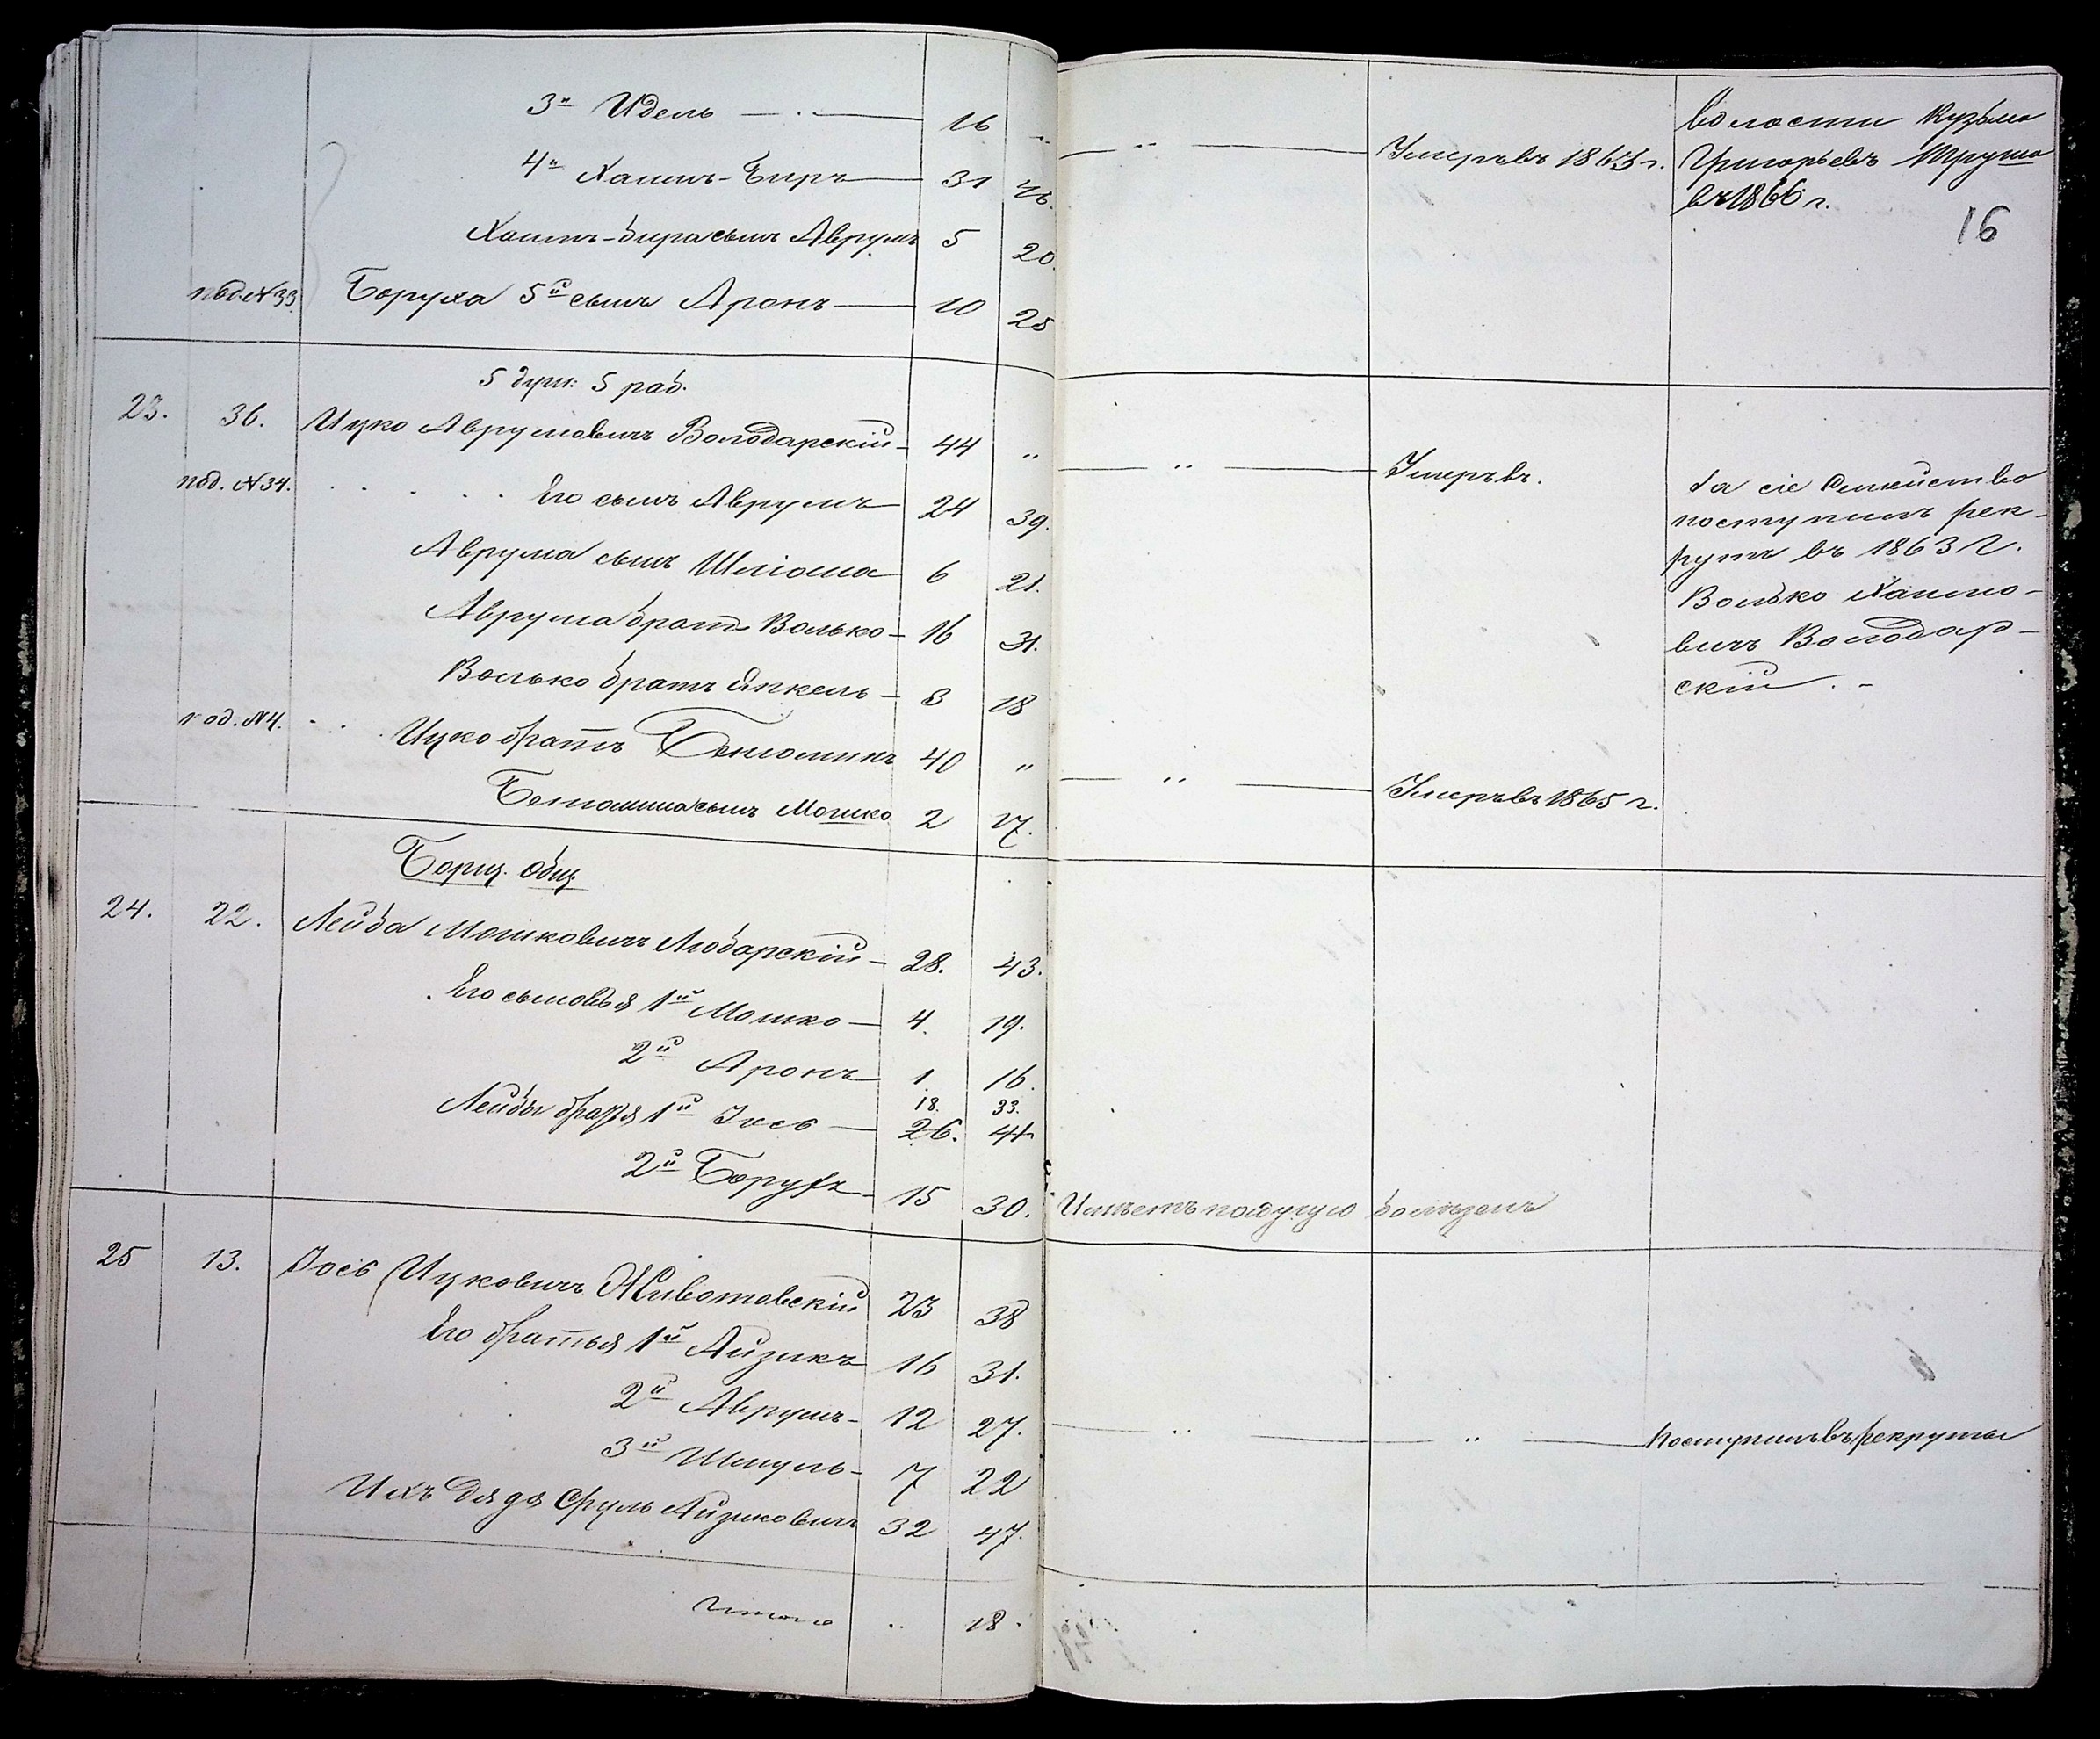 3й Идель — 16 "
— " — Умеръ въ 1863 г.
волости Кузьма
Григорьевъ Труша
въ 1866 г.
16
4й Хаимъ-Биръ — 31 46.
Хаимъ-бира сынъ Аврумъ 5 20.
под. №33 Боруха 5й сынъ Аронъ — 10 25
5 душ: 5 раб.
23. 36. Ицко Аврумовичъ Володарскій — 44 "
— " — Умеръ въ.
под. №34. Его сынъ Аврумъ — 24 39.
Аврума сынъ Шліома — 6 21.
Аврума братъ Волько — 16 31.
Волько братъ Янкель — 3 18
под. №4. Ицко братъ Беніоминъ 40 "
— " — Умеръ въ 1865 г.
Беніомина сынъ Мошко 2 17.
За сіе семейство
поступилъ рек-
рутъ въ 1863 г.
Волько Хаимо-
вичъ Володар-
скій. -
Борщ. общ.
24. 22. Лейба Мошковичъ Любарскій — 28. 43.
Его сыновья 1й Мошко — 4. 19.
2й Аронъ — 1 16.
18. 33.
Лейбы братья 1й Іось — 26. 41
2й Борухъ — 15 30. Имѣетъ падучую болѣзнь
25 13. Іось Ицковичъ Животовскій 23 38
Его братья 1й Айзикъ 16 31.
2й Аврумъ — 12 27.
— " — " — Поступилъ въ рекруты
3й Шмуль — 7 22
Ихъ дядя Сруль Айзиковичъ 32 47.
Итого " 18.